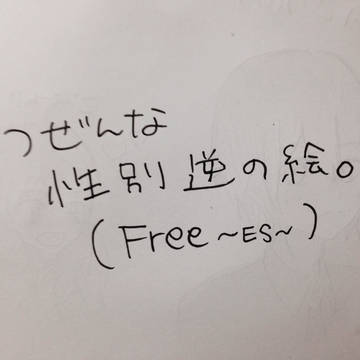 つぜんな
性別逆の絵。
(Free ~ES~)